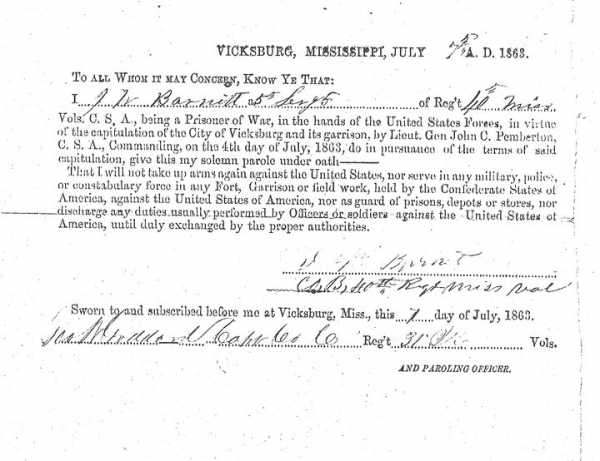 VICKSBURG, MISSISSIPPI, JULY A. D. 1863.
TO ALL WHOM IT MAY CONCERN, KNOW YE THAT:
I J W Barnett 5t Sergt of Reg't Miss
Vols. C. S. A., being a Prisoner of War, in the hands of the United States Forces, in virtue
of the capitulation of the City of Vicksburg and its garrison, by Lieut. Gen John C. Pemberton,
C. S. A., Commanding, on the 4th day of July, 1863, do in pursuance of the terms of said
capitulation, give this my solemn parole under oath—
That I will not take up arms again against the United States, nor serve in any military, police,
or constabulary force in any Fort, Garrison or field work, held by the Confederate States of
America, against the United States of America, nor as guard of prisons, depots or stores, nor
discharge any duties usually performed by Officers or soldiers against the United States of
America, until duly exchanged by the proper authorities.
Co B Regt Miss Vol
Sworn to and subscribed before me at Vicksburg, Miss., this day of July, 1863.
Capt Co C Reg't 31 Vols.
AND PAROLING OFFICER.